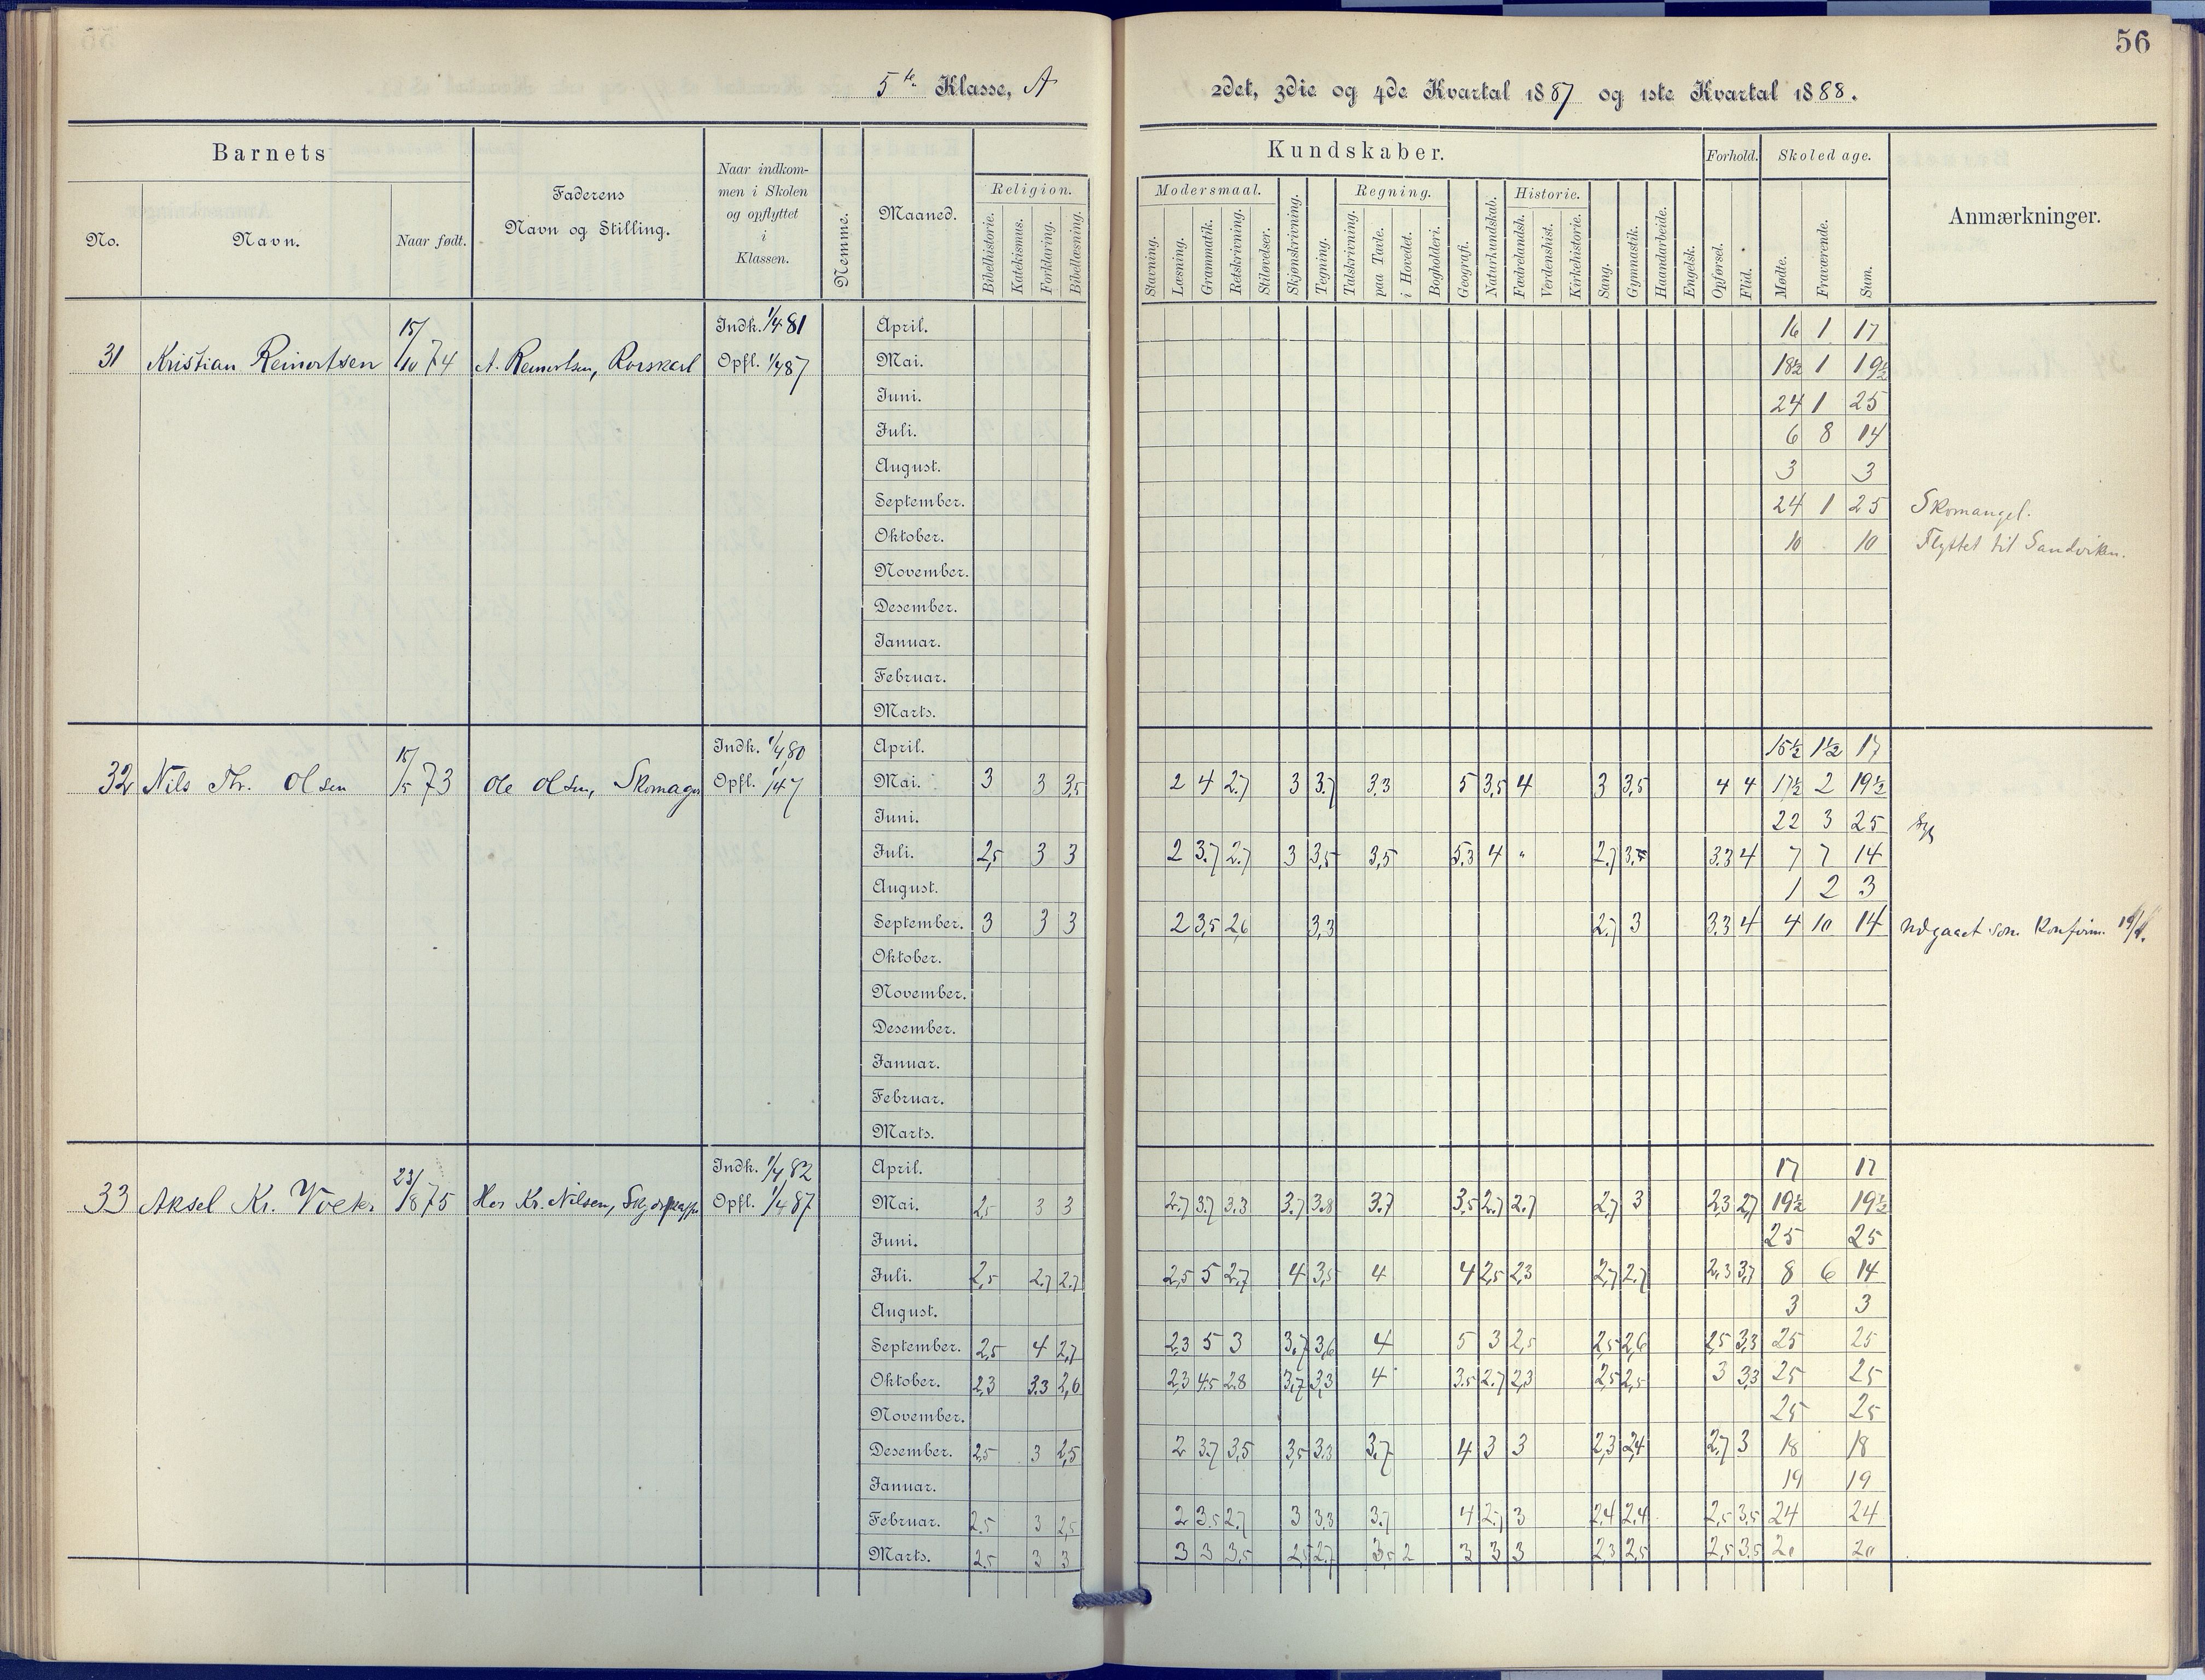 56
5te Klasse, A
2det, 3die og 4de Kvartal 1887 og 1ste Kvartal 1888.
Barnets
No.
Navn.
Naar født.
Faderens
Navn og Stilling.
Naar indkom-
men i Skolen
og opflyttet
i
Klassen.
Nemme.
Maaned.
Kundskaber.
Religion.
Bibelhistorie.
Katekismus.
Forklaring.
Bibellæsning.
Modersmaal.
Stavning.
Læsning.
Grammatik.
Retskrivning.
Stiløvelser.
Skjønskrivning.
Tegning.
Regning.
Talskrivning.
paa Tavle.
i Hovedet.
Bogholderi.
Geografi.
Naturkundskab.
Historie.
Fædrelandsh.
Verdenshist.
Kirkehistorie.
Sang.
Gymnastik.
Haandarbeide.
Engelsk.
Forhold.
Opførsel.
Flid.
Skoledage.
Mødte.
Fraværende.
Sum.
Anmærkninger.
31 Kristian Reinertsen 15/10 74 A. Reinertsen, Rorskarl
Indk. 1/4 81
Opfl. 1/4 87
April. 16 1 17
Mai. 18½ 1 19½
Juni. 24 1 25
Juli. 6 8 14
August. 3 3
September. 24 1 25 Skomangel.
Oktober. 10 10 Flyttet til Sandviken.
November.
Desember.
Januar.
Februar.
Marts.
32 Nils Thr. Olsen 15/5 73 Ole Olsen, Skomager
Indk. 1/4 80
Opfl. 1/4 7
April. 15½ 1½ 17
Mai. 3 3 3,5 2 4 2.7 3 3.7 3.3 5 3,5 4 3 3,5 4 4 17½ 2 19½
Juni. 22 3 25 Syg
Juli. 2,5 3 3 2 3.7 2.7 3 3,5 3,5 5,3 4 " 2.7 3,5 3.3 4 7 7 14
August. 1 2 3
September. 3 3 3 2 3,5 2,6 3,3 2.7 3 3.3 4 4 10 14 Udgaaet som Konfirm.
Oktober.
November.
Desember.
Januar.
Februar.
Marts.
33 Aksel Kr. 23/8 75 Kr. Nilsen,
Indk. 1/4 82
Opfl. 1/4 87
April. 17 17
Mai. 2,5 3 3 2.7 3.7 3.3 3.7 3.8 3.7 3,5 2.7 2.7 2,7 3 2,3 2,7 19½ 19½
Juni. 25 25
Juli. 2,5 2.7 2.7 2,5 5 2,7 4 3,5 4 4 2,5 2,3 2,7 2.7 2,3 3,7 8 6 14
August. 3 3
September. 2,5 4 2,7 2,3 5 3 3,7 3,6 4 5 3 2,5 2,5 2,6 2,5 3,3 25 25
Oktober. 2,3 3.3 2,6 2,3 4.5 2.8 3,7 3,3 4 3.5 2.7 2,3 2,5 2,5 3 3,3 25 25
November. 25 25
Desember. 2,5 3 2,5 2 3.7 3,5 3,5 3.3 3.7 4 3 3 2,3 2,4 2,7 3 18 18
Januar. 19 19
Februar. 2.5 3 2,5 2 3.5 2.7 3 3,3 3.7 4 2.7 3 2,4 2,4 2,5 3,5 24 24
Marts. 2.5 3 3 3 3 3,5 2,5 2.7 3,5 2 3 3 3 2,3 2,5 2,5 3.5 20 20